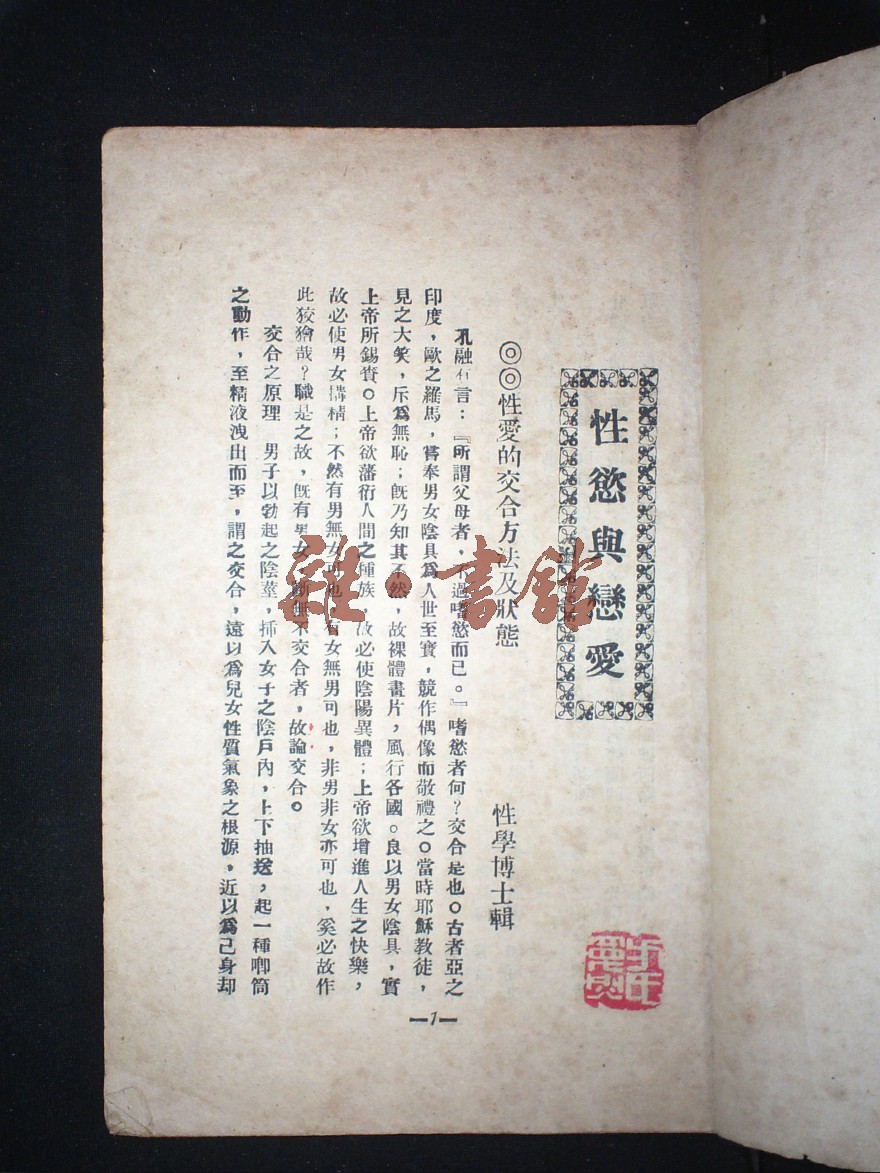 性慾與戀愛
◎◎性愛的交合方法及狀態
性學博士輯
孔融有言：『所謂父母者，不過嗜慾而已。』嗜慾者何？交合是也。古者亞之
印度，歐之羅馬，嘗奉男女陰具爲人世至寶，競作偶像而敬禮之。當時耶穌教徒，
見之大笑，斥爲無恥；旣乃知其不然，故裸體畫片，風行各國。良以男女陰具，實
上帝所錫賚。上帝欲藩衍人間之種族，故必使陰陽異體；上帝欲增進人生之快樂，
故必使男女搆精；不然有男無女可也，有女無男可也，非男非女亦可也，奚必故作
此狡獪哉？職是之故，旣有男女，斷無不交合者，故論交合。
交合之原理　男子以勃起之陰莖，揷入女子之陰戶內，上下抽送，起一種唧筒
之動作，至精液洩出而至，謂之交合，遠以爲兒女性質氣象之根源，近以爲己身却
—1—
雜·書館